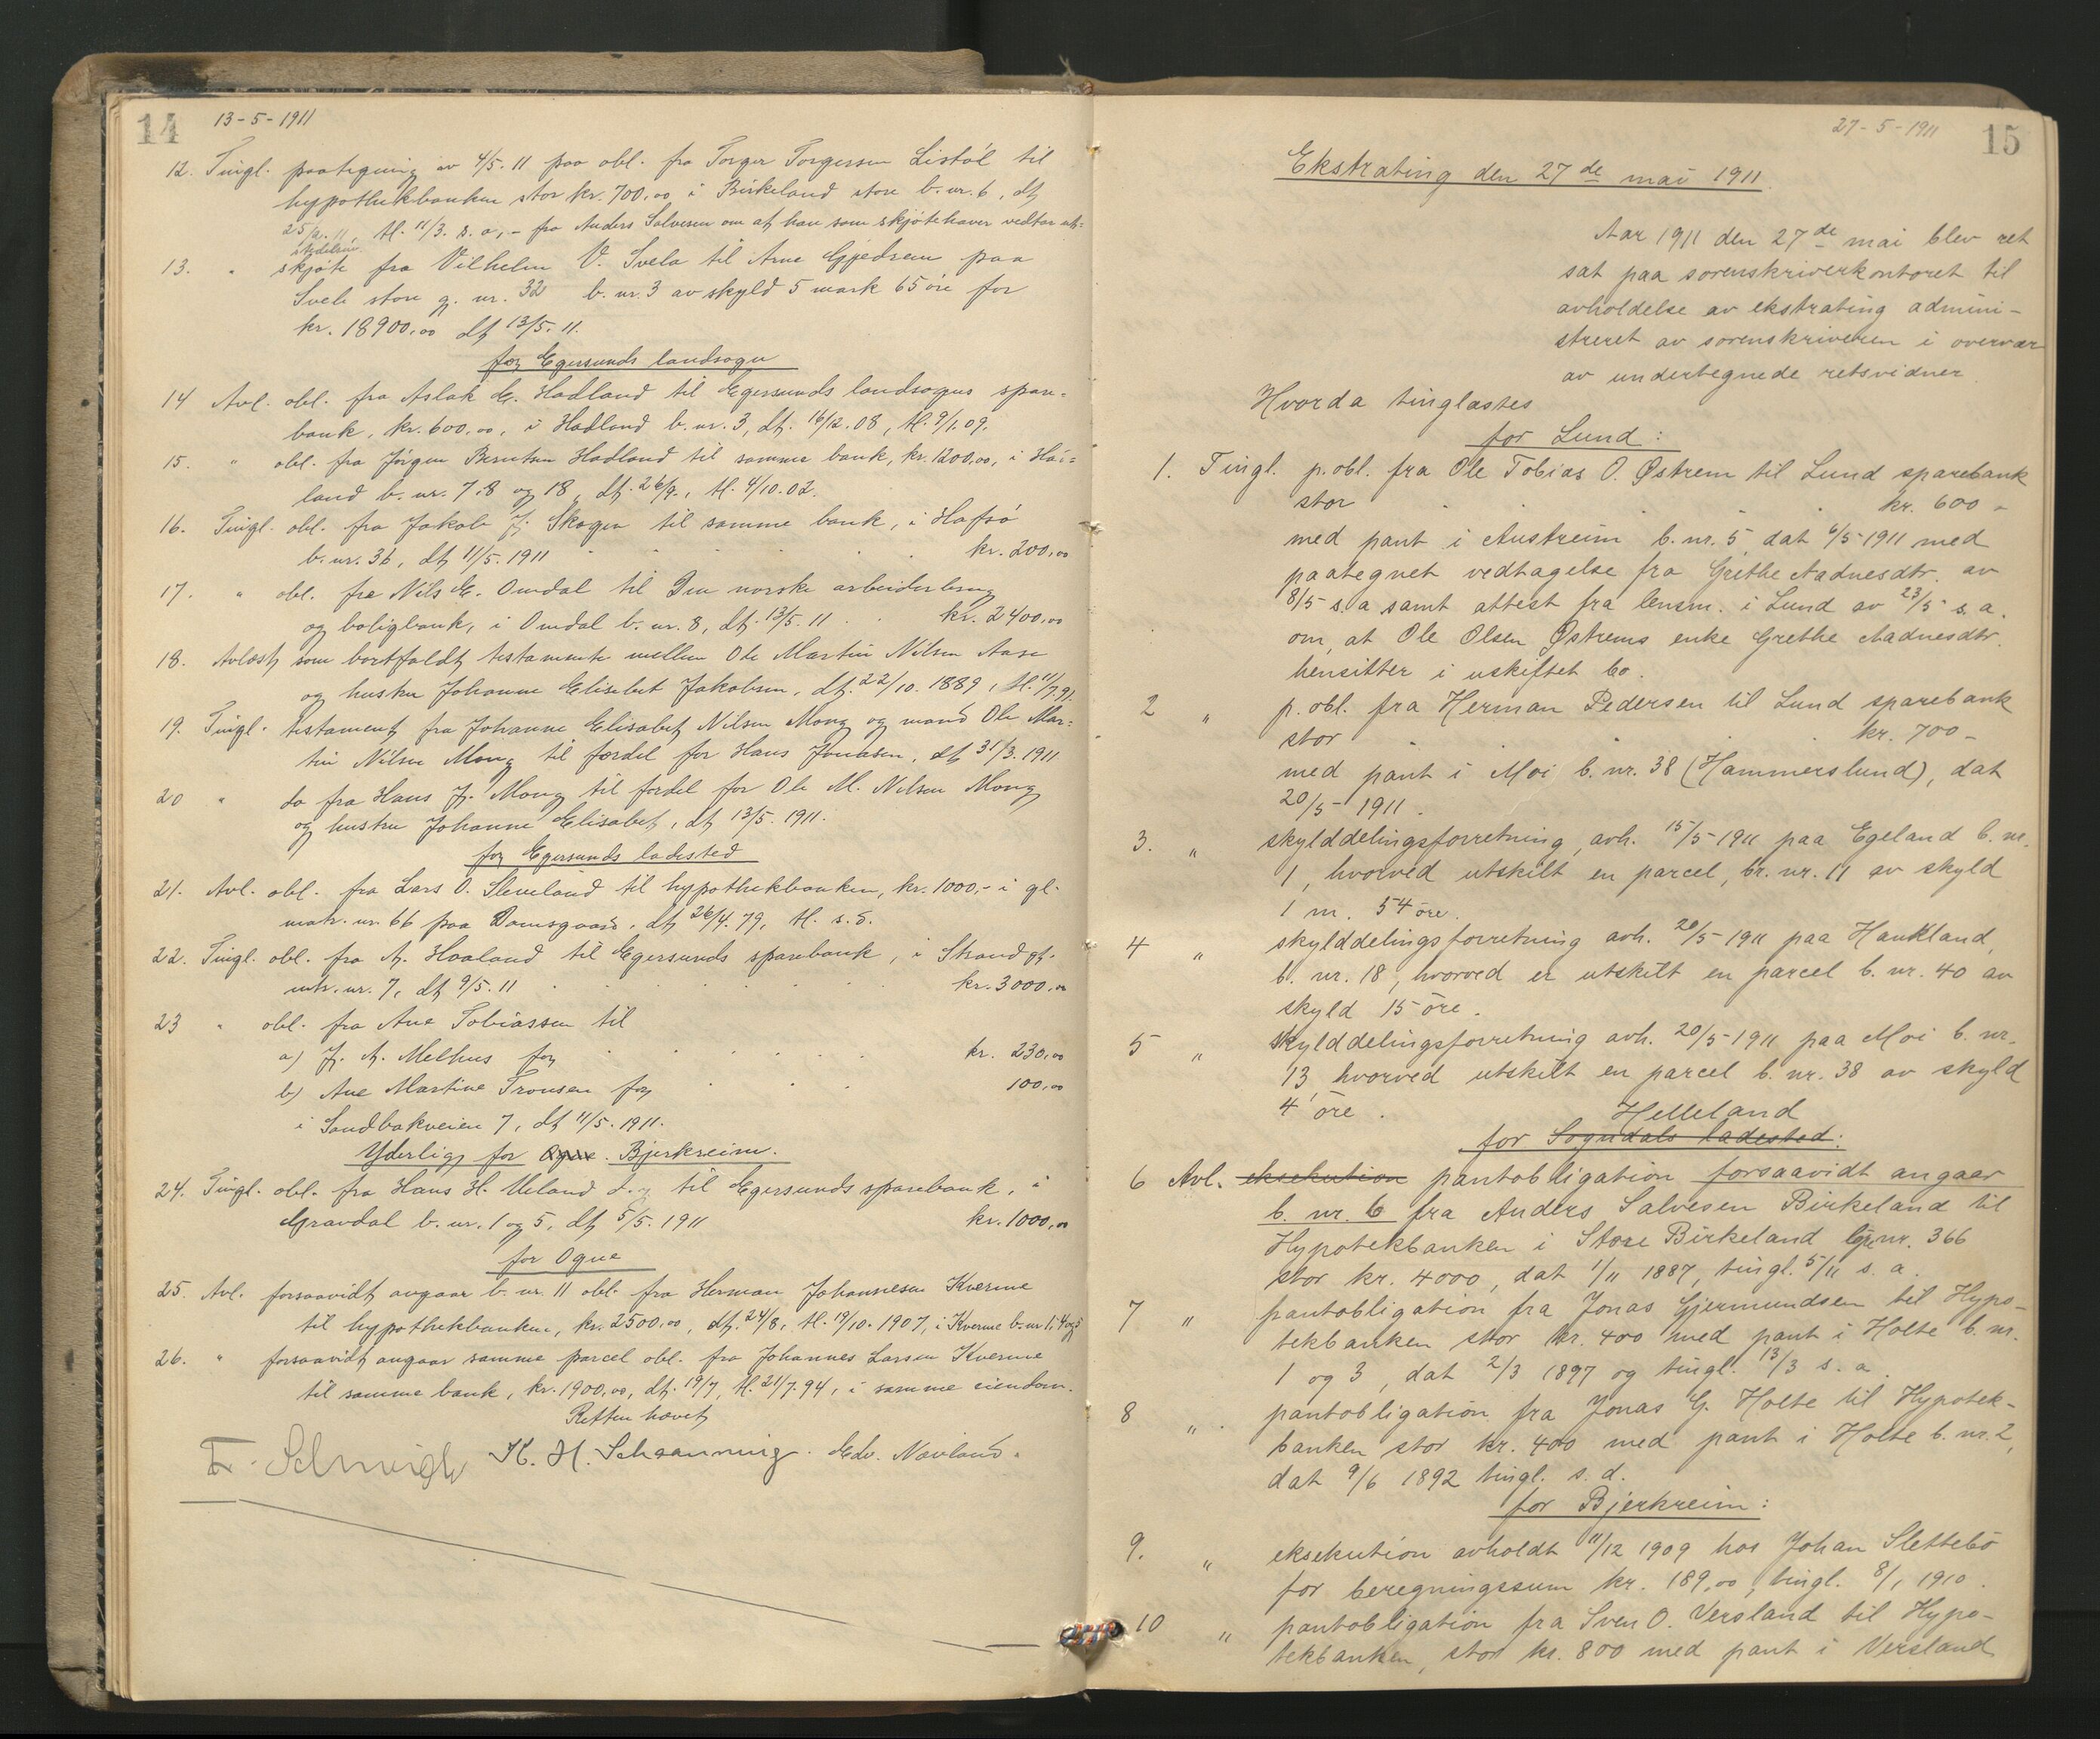 14
13-5-1911
12. Tingl. paategning av 4/5. 11 paa obl. fra Torger Torgersen Listöl til
hypothekbanken stor kr. 700,00 i Birkeland store b. nr. 6, dt
25/2. 11, tl. 11/3. s. a, - fra Anders Salvesen om at han som skjötehaver vedtar
13. " skjöte fra Vilhelm V. Svela til Arne Gjedrem paa
Svela store g. nr. 32 b. nr. 3 av skyld 5 mark 65 öre for
kr. 18900,00 dt 13/5. 11.
for Egersunds landsogn
14 Avl. obl. fra Aslak E. Hadland til Egersunds landsogns spare-
bank, kr. 600,00, i Hadland b. nr. 3, dt. 16/12. 08, tl. 9/1. 09.
15. " obl. fra Jörgen Berntsen Hadland til samme bank, kr. 1200,00, i Had-
land b. nr. 7. 8 og 18, dt. 26/9., tl. 4/10. 02.
16. Tingl. obl. fra Jakob J. Skogen til samme bank, i Hafsö
b. nr. 36, dt 11/5. 1911 kr. 200,00
17. " obl. fra Nils E. Omdal til Den norske arbeiderbrug
og boligbank, i Omdal b. nr. 8, dt. 13/5. 11 kr. 2400,00
18. Avlæst som bortfaldt testamente mellem Ole Martin Nilsen Aase
og hustru Johanne Elisabet Jakobsen, dt. 22/10. 1889, tl. 11/7. 91.
19. Tingl. testament fra Johanne Elisabet Nilsen Mong og mand Ole Mar-
tin Nilsen Mong til fordel for Hans Jonassen, dt 31/3. 1911
20 " do fra Hans J. Mong til fordel for Ole M. Nilsen Mong
og hustru Johanne Elisabet, dt 13/5. 1911.
for Egersunds ladested
21. Avl. obl. fra Lars O. Sleveland til hypothekbanken, kr. 1000,- i gl.
matr. nr. 66 paa Damsgaard, dt 26/4. 79, tl. s. d.
22. Tingl. obl. fra A. Haaland til Egersunds sparebank, i Strandgt.
mtr. nr. 7, dt 9/5. 11 kr. 3000,00
23 " obl. fra Ane Tobiassen til
a) J. A. Melhus for kr. 230,00
b) Ane Martine Tronsen for 100,00
i Sandbakveien 7, dt 11/5. 1911.
Yderlig for Ogne. Bjerkreim.
24. Tingl. obl. fra Hans H. Ueland til Egersunds sparebank, i
Gravdal b. nr. 1 og 5, dt 5/5. 1911 kr. 1000,00
for Ogne
25. Avl. forsaavidt angaar b. nr. 11 obl. fra Herman Johannesen Kverme
til hypothekbanken, kr. 2500,00, dt. 24/8, tl. 19/10. 1907, i Kverme b. nr 1, 4 og 5
26. " forsaavidt angaar samme parcel obl. fra Johannes Larsen Kverme
til samme bank, kr. 1900,00, dt. 19/7, tl. 21/7. 94, i samme eiendom.
Retten hævet
K. H. Schaanning. Edv. Navland.
27-5-1911
15
Ekstrating den 27de mai 1911.
Aar 1911 den 27de mai blev ret
sat paa sorenskriverkontoret til
avholdelse av ekstrating admini-
streret av sorenskriveren i overvær
av undertegnede retsvidner.
Hvorda tinglæstes
for Lund:
1. Tingl. p. obl. fra Ole Tobias O. Østrem til Lund sparebank
stor kr. 600 -
med pant i Austreim b. nr. 5, dat 6/5 1911 med
paategnet vedtagelse fra Grethe Aadnesdtr. av
8/5 s. a samt attest fra lensm. i Lund av 23/5 s. a.
om, at Ole Olsen Østrems enke Grethe Aadnesdtr.
hensitter i uskiftet bo.
2 " p. obl. fra Herman Pedersen til Lund sparebank
stor kr. 700 -
med pant i Moi b. nr. 38 (Hammerslund), dat
20/5 1911.
3. " skylddelingsforretning, avh. 15/5 1911 paa Egeland b. nr.
1, hvorved utskilt en parcel, br. nr. 11 av skyld
1 m. 54 öre.
4 " skylddelingsforretning avh. 20/5 1911 paa Haukland,
b. nr. 18, hvorved er utskilt en parcel b. nr. 40 av
skyld 15 öre.
5 " skylddelingsforretning avh. 20/5 1911 paa Moi b. nr.
13, hvorved utskilt en parcel b. nr. 38 av skyld
4 öre.
Helleland
for Sogndals ladested:
6 Avl. eksekution pantobligation forsaavidt angaar
b. nr. 6 fra Anders Salvesen Birkeland til
Hypotekbanken i Store Birkeland lpnr. 366
stor kr. 4000, dat 1/11 1887, tingl. 5/11 s. a.
7 " pantobligation fra Jonas Gjermundsen til Hypo-
tekbanken stor kr. 400 med pant i Holte b. nr.
1 og 3, dat 2/3 1897 og tingl. 13/3 s. a.
8 " pantobligation fra Jonas G. Holte til Hypotek-
banken stor kr. 400 med pant i Holte b. nr. 2,
dat 9/6 1892 tingl. s. d.
for Bjerkreim:
9. " eksekution avholdt 11/12 1909 hos Johan Slettebö
for beregningssum kr. 189,00, tingl. 8/1 1910.
10 " pantobligation fra Sven O. Versland til Hypo-
tekbanken, stor kr. 800 med pant i Versland